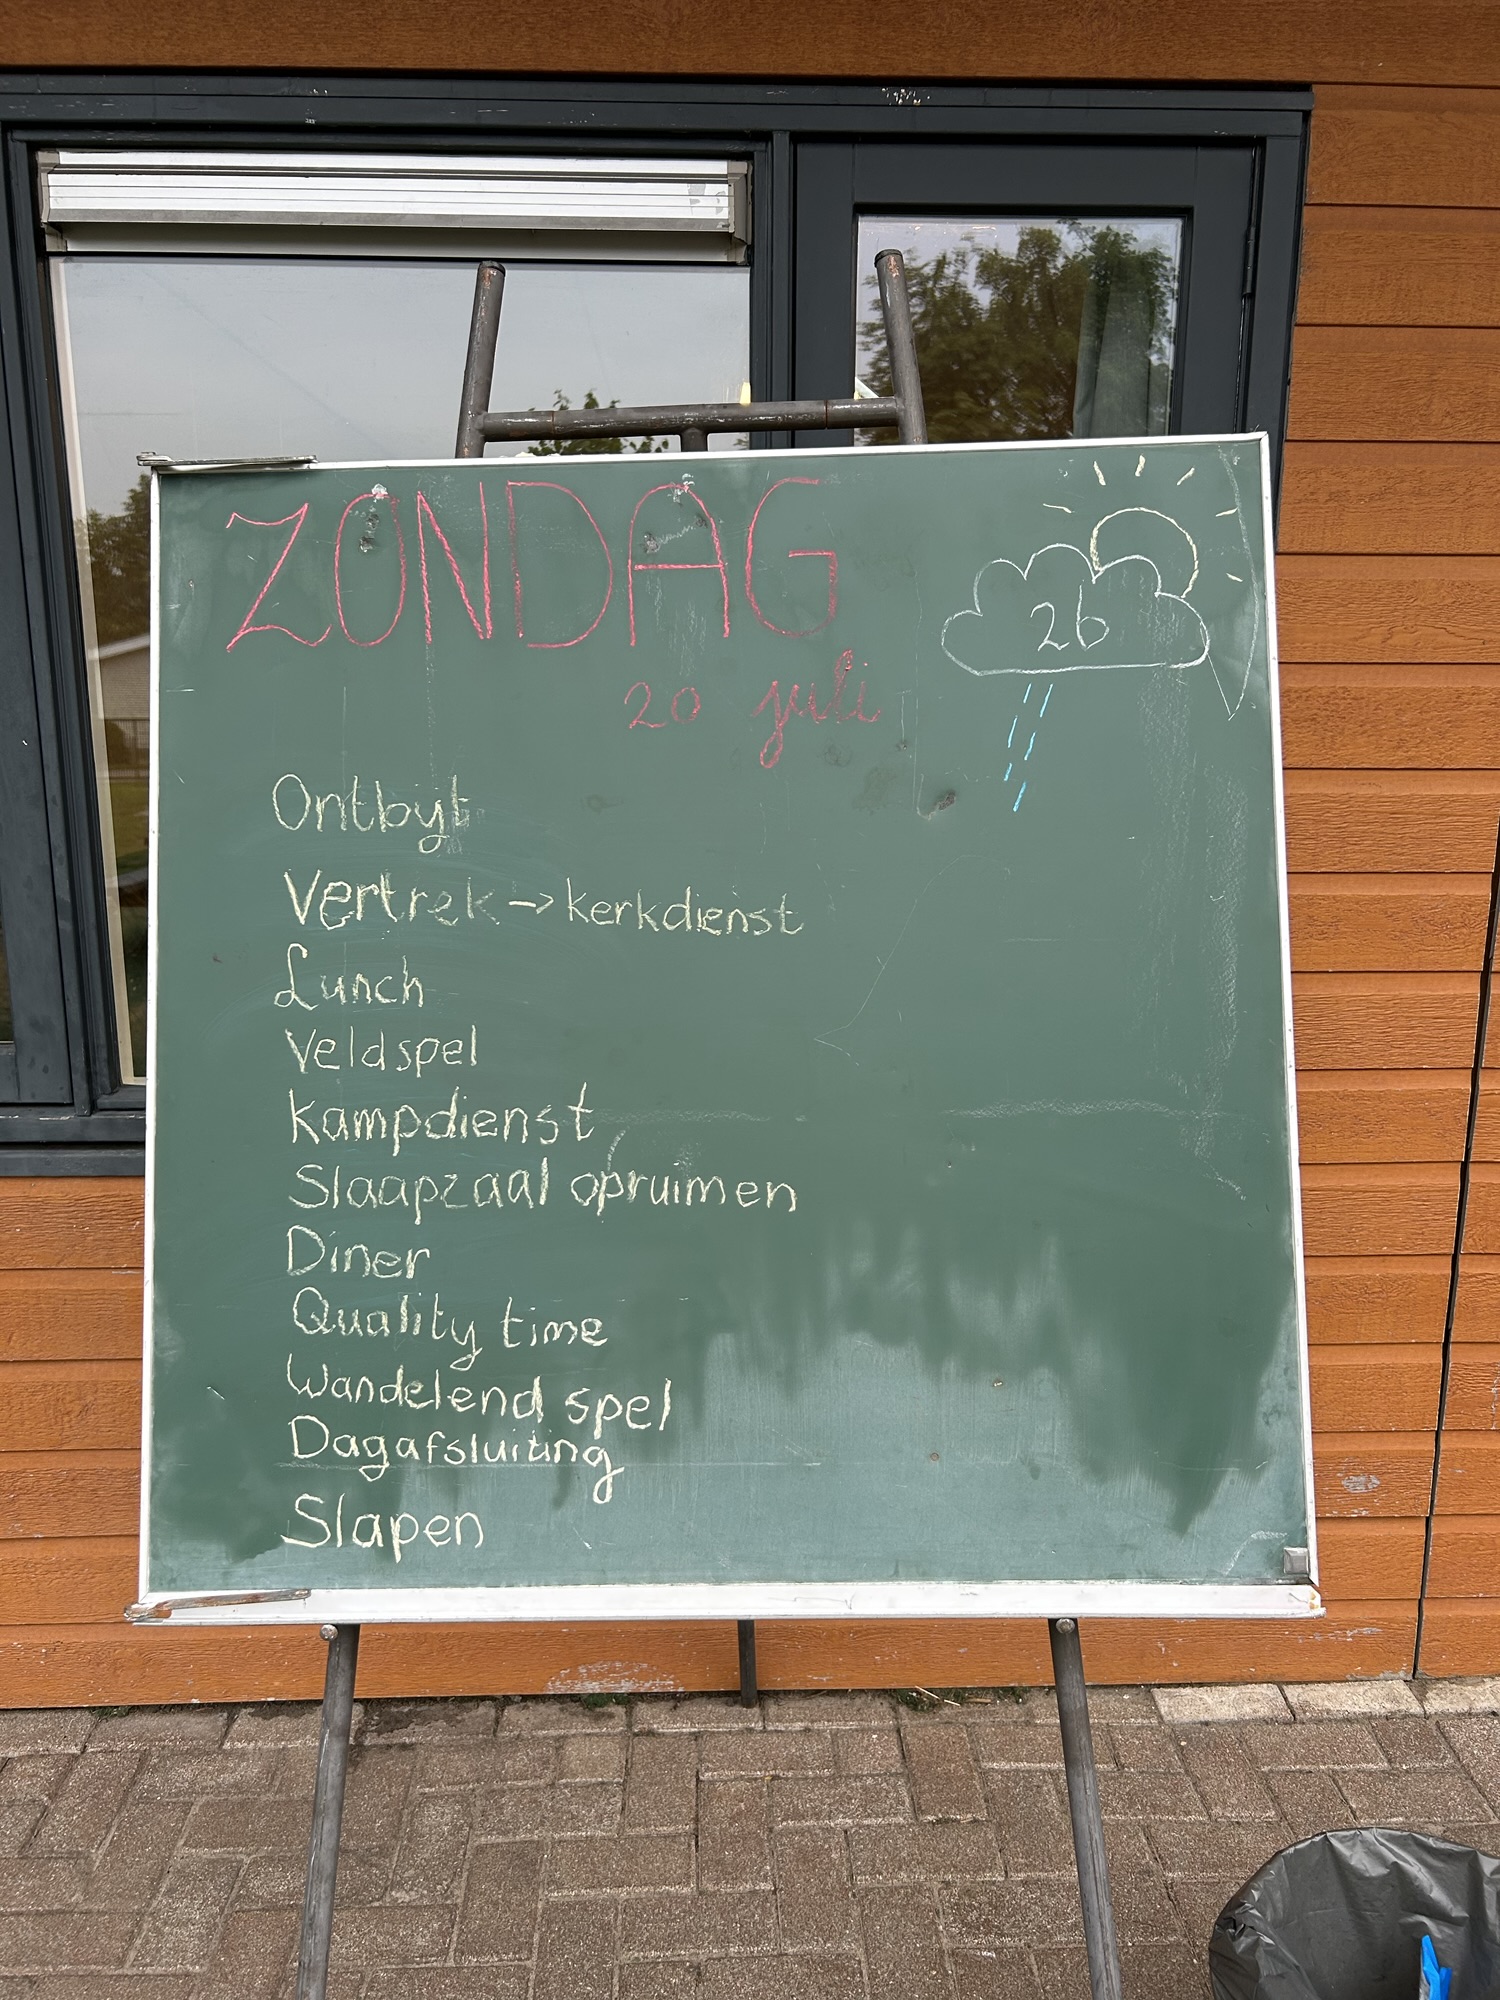 ZONDAG
20 juli
26
Ontbijt
Vertrek → kerkdienst
Lunch
Veldspel
Kampdienst
Slaapzaal opruimen
Diner
Quality time
Wandelend spel
Dagafsluiting
Slapen